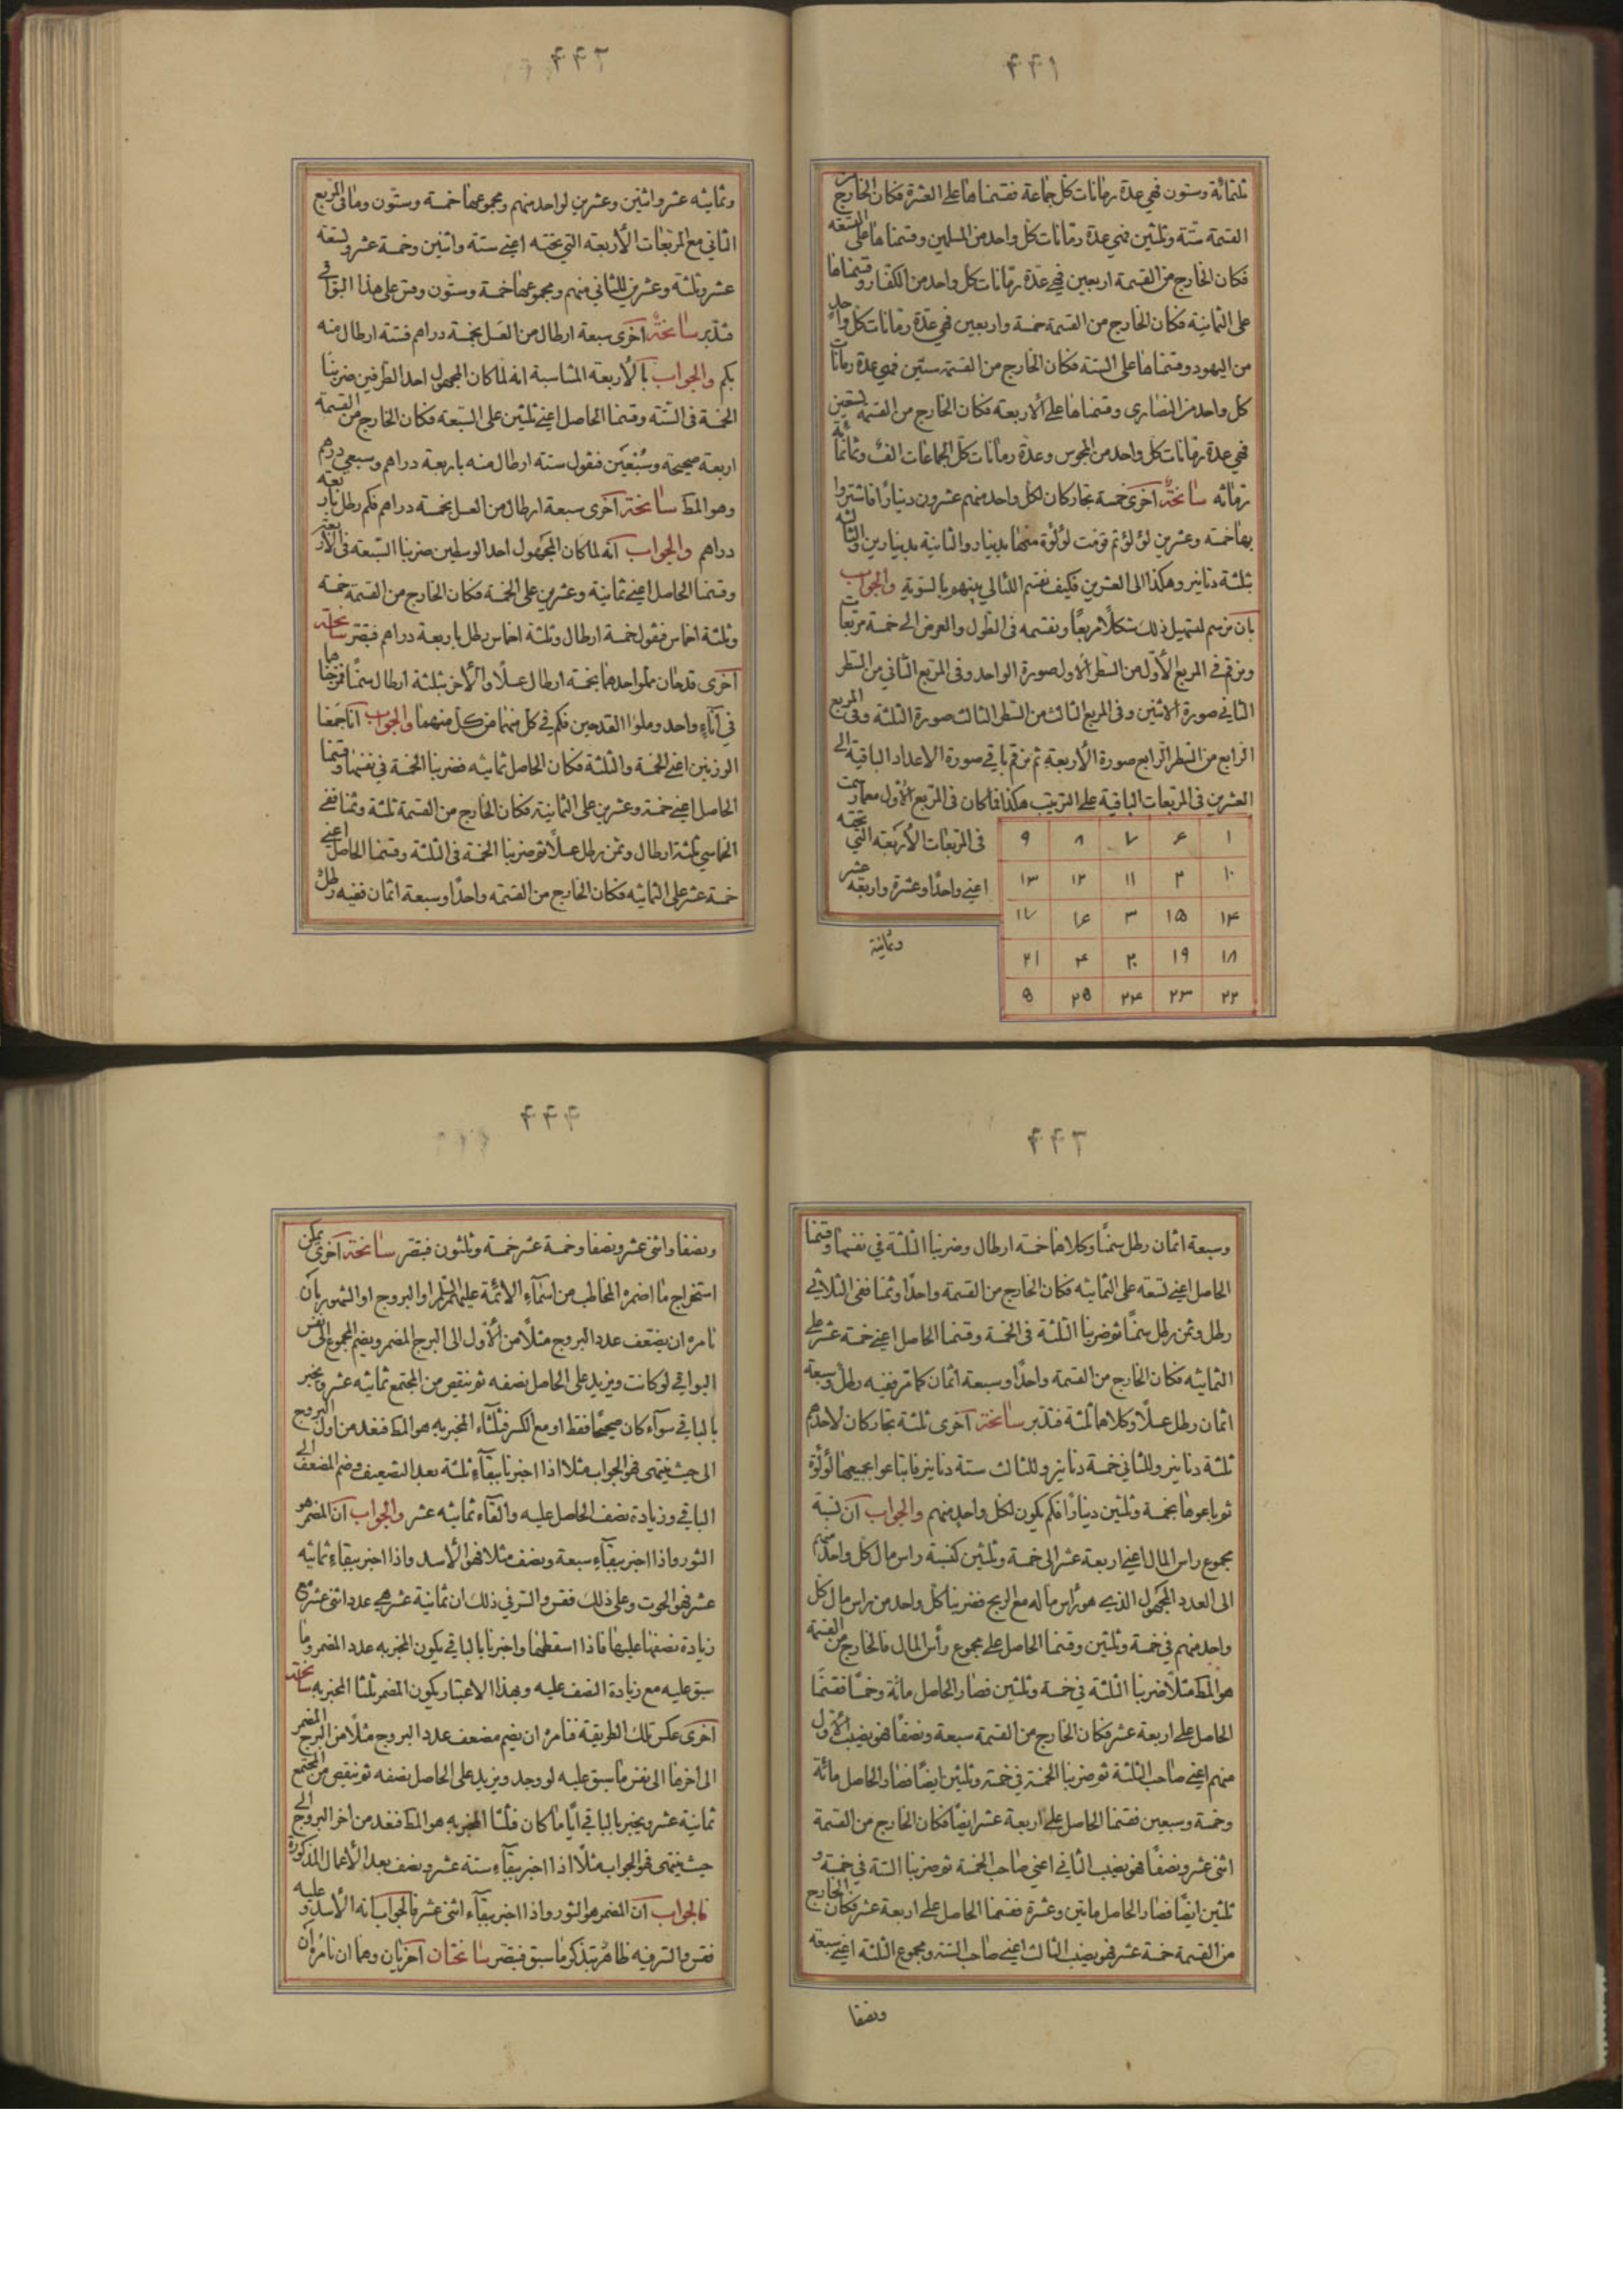 ۴۴۱
ثلثمائة وستون فهي عدة رمانات كل جماعة فقسمناها على العشرة فكان الخارج من
القسمة ستة وثلثين فهي عدة رمانات كل واحد من المسلمين وقسمناها على التسعة
فكان الخارج من القسمة اربعين فهي عدة رمانات كل واحد من الكفار وقسمناها
على الثمانية فكان الخارج من القسمة خمسة واربعين فهي عدة رمانات كل واحد
من اليهود وقسمناها على الستة فكان الخارج من القسمة ستين فهي عدة رمانات
كل واحد من النصارى وقسمناها على الاربعة فكان الخارج من القسمة تسعين
فهي عدة رمانات كل واحد من المجوس وعدة رمانات كل الجماعات الف وثمانمائة
رمانه سانحة اخرى خمسة تجار كان لكل واحد منهم عشرون دينارا فاشتروا
بها خمسة وعشرين لؤلؤ ثم قومت لؤلؤة منها بدينار والثانية بدينارين والثالثه
بثلثة دنانير وهكذا الى العشرين فكيف نقسم اللئالي بينهم بالسوية والجواب
بان نرسم لتسهيل ذلك شكلا مربعا ونقسمه في الطول والعرض الى خمسة مربعات
ونرقم في المربع الأول من السطر الاول صورة الواحد وفي المربع الثاني من السطر
الثاني صورة الاثنين وفي المربع الثالث من السطر الثالث صورة الثلثة وفي المربع
الرابع من السطر الرابع صورة الأربعة ثم نرقم باقي صورة الاعداد الباقية الى
العشرين في المربعات الباقية على الترتيب هكذا فما كان في المربع الأول مع ما رسمت
في المربعات الأربعة التي تحته
اعني واحدا وعشرة واربعة عشر
۱ ۶ ۷ ۸ ۹
۱۰ ۲ ۱۱ ۱۲ ۱۳
۱۴ ۱۵ ۳ ۱۶ ۱۷
۱۸ ۱۹ ۲۰ ۴ ۲۱
۲۲ ۲۳ ۲۴ ۲۵ ۵
وثمانية
۴۴۲
وثمانيه عشر واثنين وعشرين لواحد منهم ومجموعها خمسة وستون وما في المربع
الثاني مع المربعات الأربعه التي تحته اعني ستة واثنين وخمسة عشر وتسعة
عشر وثلثة وعشرين للثاني منهم ومجموعها خمسة وستون وقس على هذا البواقي
فتدبر سانحة اخرى سبعة ارطال من العسل بخمسة دراهم فستة ارطال منه
بكم والجواب بالأربعه المتناسبة انه لما كان المجهول احد الطرفين ضربنا
الخمسة في الستة وقسمنا الحاصل اعني ثلثين على السبعة فكان الخارج من القسمة
اربعة صحيحة وسبعين فنقول ستة ارطال منه باربعة دراهم وسبعي درهم
وهو المط سانحة اخرى سبعة ارطال من العسل بخمسة دراهم فكم رطل باربعة
دراهم والجواب انه لما كان المجهول احد الوسطين ضربنا السبعة في الأربعة
وقسمنا الحاصل اعني ثمانية وعشرين على الخمسة فكان الخارج من القسمة خمسة
وثلثة اخماس فنقول خمسة ارطال وثلثة اخماس رطل باربعة دراهم فتبصر سانحة
اخرى قدحان ملو احدهما بخمسة ارطال عسلا والآخر بثلثة ارطال سمنا فمزجناهما
في اناء واحد وملوا القدحين فكم في كل منهما من كل منهما والجواب انا جمعنا
الوزنين اعني الخمسة والثلثة فكان الحاصل ثمانيه فضربنا الخمسة في نفسها وقسمنا
الحاصل اعني خمسة وعشرين على الثمانية فكان الخارج من القسمة ثلثة وثمنا ففي
الخماسي ثلثة ارطال وثمن رطل عسلا ثم ضربنا الخمسة في الثلثة وقسمنا الحاصل اعني
خمسة عشر على الثمانيه فكان الخارج من القسمه واحدا وسبعة اثمان ففيه رطل
۴۴۳
وسبعة اثمان رطل سمنا وكلاهما خمسة ارطال وضربنا الثلثة في نفسها وقسمنا
الحاصل اعني تسعة على الثمانيه فكان الخارج من القسمة واحدا وثمنا ففي الثلاثي
رطل وثمن رطل سمنا ثم ضربنا الثلثة في الخمسة وقسمنا الحاصل اعني خمسة عشر على
الثمانيه فكان الخارج من القسمة واحدا وسبعة اثمان كما مر ففيه رطل وسبعة
اثمان رطل عسلا وكلاهما ثلثة فتدبر سانحة اخرى ثلثة تجار كان لاحدهم
ثلثة دنانير وللثاني خمسة دنانير وللثالث ستة دنانير فابتاعوا بجميعها لؤلؤة
ثم باعوها بخمسة وثلثين دينارا فكم يكون لكل واحد منهم والجواب ان نسبة
مجموع راس المال اعني اربعة عشر الى خمسة وثلثين كنسبة راس مال كل واحد منهم
الى العدد المجهول الذي هو رأس ماله مع الربح فضربنا كل واحد من راس مال كل
واحد منهم في خمسة وثلثين وقسمنا الحاصل على مجموع رأس المال فالخارج من القسمة
هو المط مثلا ضربنا الثلثة في خمسة وثلثين فصار الحاصل مائة وخمسا فقسمنا
الحاصل على اربعة عشر فكان الخارج من القسمة سبعة ونصفا فهو نصيب الأول
منهم اعني صاحب الثلثة ثم ضربنا الخمسة في خمسة وثلثين ايضا فصار الحاصل مائة
وخمسة وسبعين فقسمنا الحاصل على اربعة عشر ايضا فكان الخارج من القسمة
اثنى عشر ونصفا فهو نصيب الثاني اعني صاحب الخمسة ثم ضربنا الستة في خمسة و
ثلثين ايضا فصار الحاصل مائتين وعشرة فقسمنا الحاصل على اربعة عشر فكان الخارج
من القسمة خمسة عشر فهو نصيب الثالث اعني صاحب الستة ومجموع الثلثة اعني سبعة
ونصفا
۴۴۴
ونصفا واثنى عشر ونصفا وخمسة عشر خمسة وثلثون فتبصر سانحة اخرى يمكن
استخراج ما اضمره المخاطب من اسماء الائمة عليهم السلم او البروج او الشهور بان
نامره ان يضعف عدد البروج مثلا من الأول الى البرج المضمر ويضم المجموع الى نفس
البواقي لو كانت ويزيد على الحاصل نصفه ثم ننقص من المجتمع ثمانيه عشر ويخبر
بالباقي سواء كان صحيحا فقط او مع الكسر فثلثاء المخبر به هو المط فنعد من اول البروج
الى حيث ينتهى فهو الجواب مثلا اذا اخبرنا ببقاء ثلثة بعد التضعيف وضم المضعف الى
الباقي وزيادة نصف الحاصل عليه والقاء ثمانيه عشر والجواب ان المضمر هو
الثور واذا اخبر ببقاء سبعة ونصف مثلا فهو الأسد واذا اخبر ببقاء ثمانيه
عشر فهو الحوت وعلى ذلك فقس والسر في ذلك ان ثمانية عشر هي عدد اثنى عشر مع
زيادة نصفها عليها فاذا اسقطها واخبرنا بالباقي يكون المخبر به عدد المضمر وما
سبق عليه مع زيادة النصف عليه وبهذا الاعتبار يكون المضمر ثلثا المخبر به سانحة
اخرى عكس تلك الطريقة فنامره ان يضم مضعف عدد البروج مثلا من البرج المضمر
الى اخرها الى نفس ما سبق عليه لو وجد ويزيد على الحاصل نصفه ثم ننقص من المجتمع
ثمانية عشر ويخبر بالباقي اياما كان فثلثا المخبر به هو المط فنعد من اخر البروج الى
حيث ينتهى فهو الجواب مثلا اذا اخبر ببقاء ستة عشر ونصف بعد الأعمال المذكورة
فالجواب ان المضمر هو الثور واذا اخبر ببقاء اثنى عشر فالجواب انه الأسد وعليه
فقس والسر فيه ظاهر بتذكر ما سبق فتبصر سانحتان اخريان وهما ان نامره ان